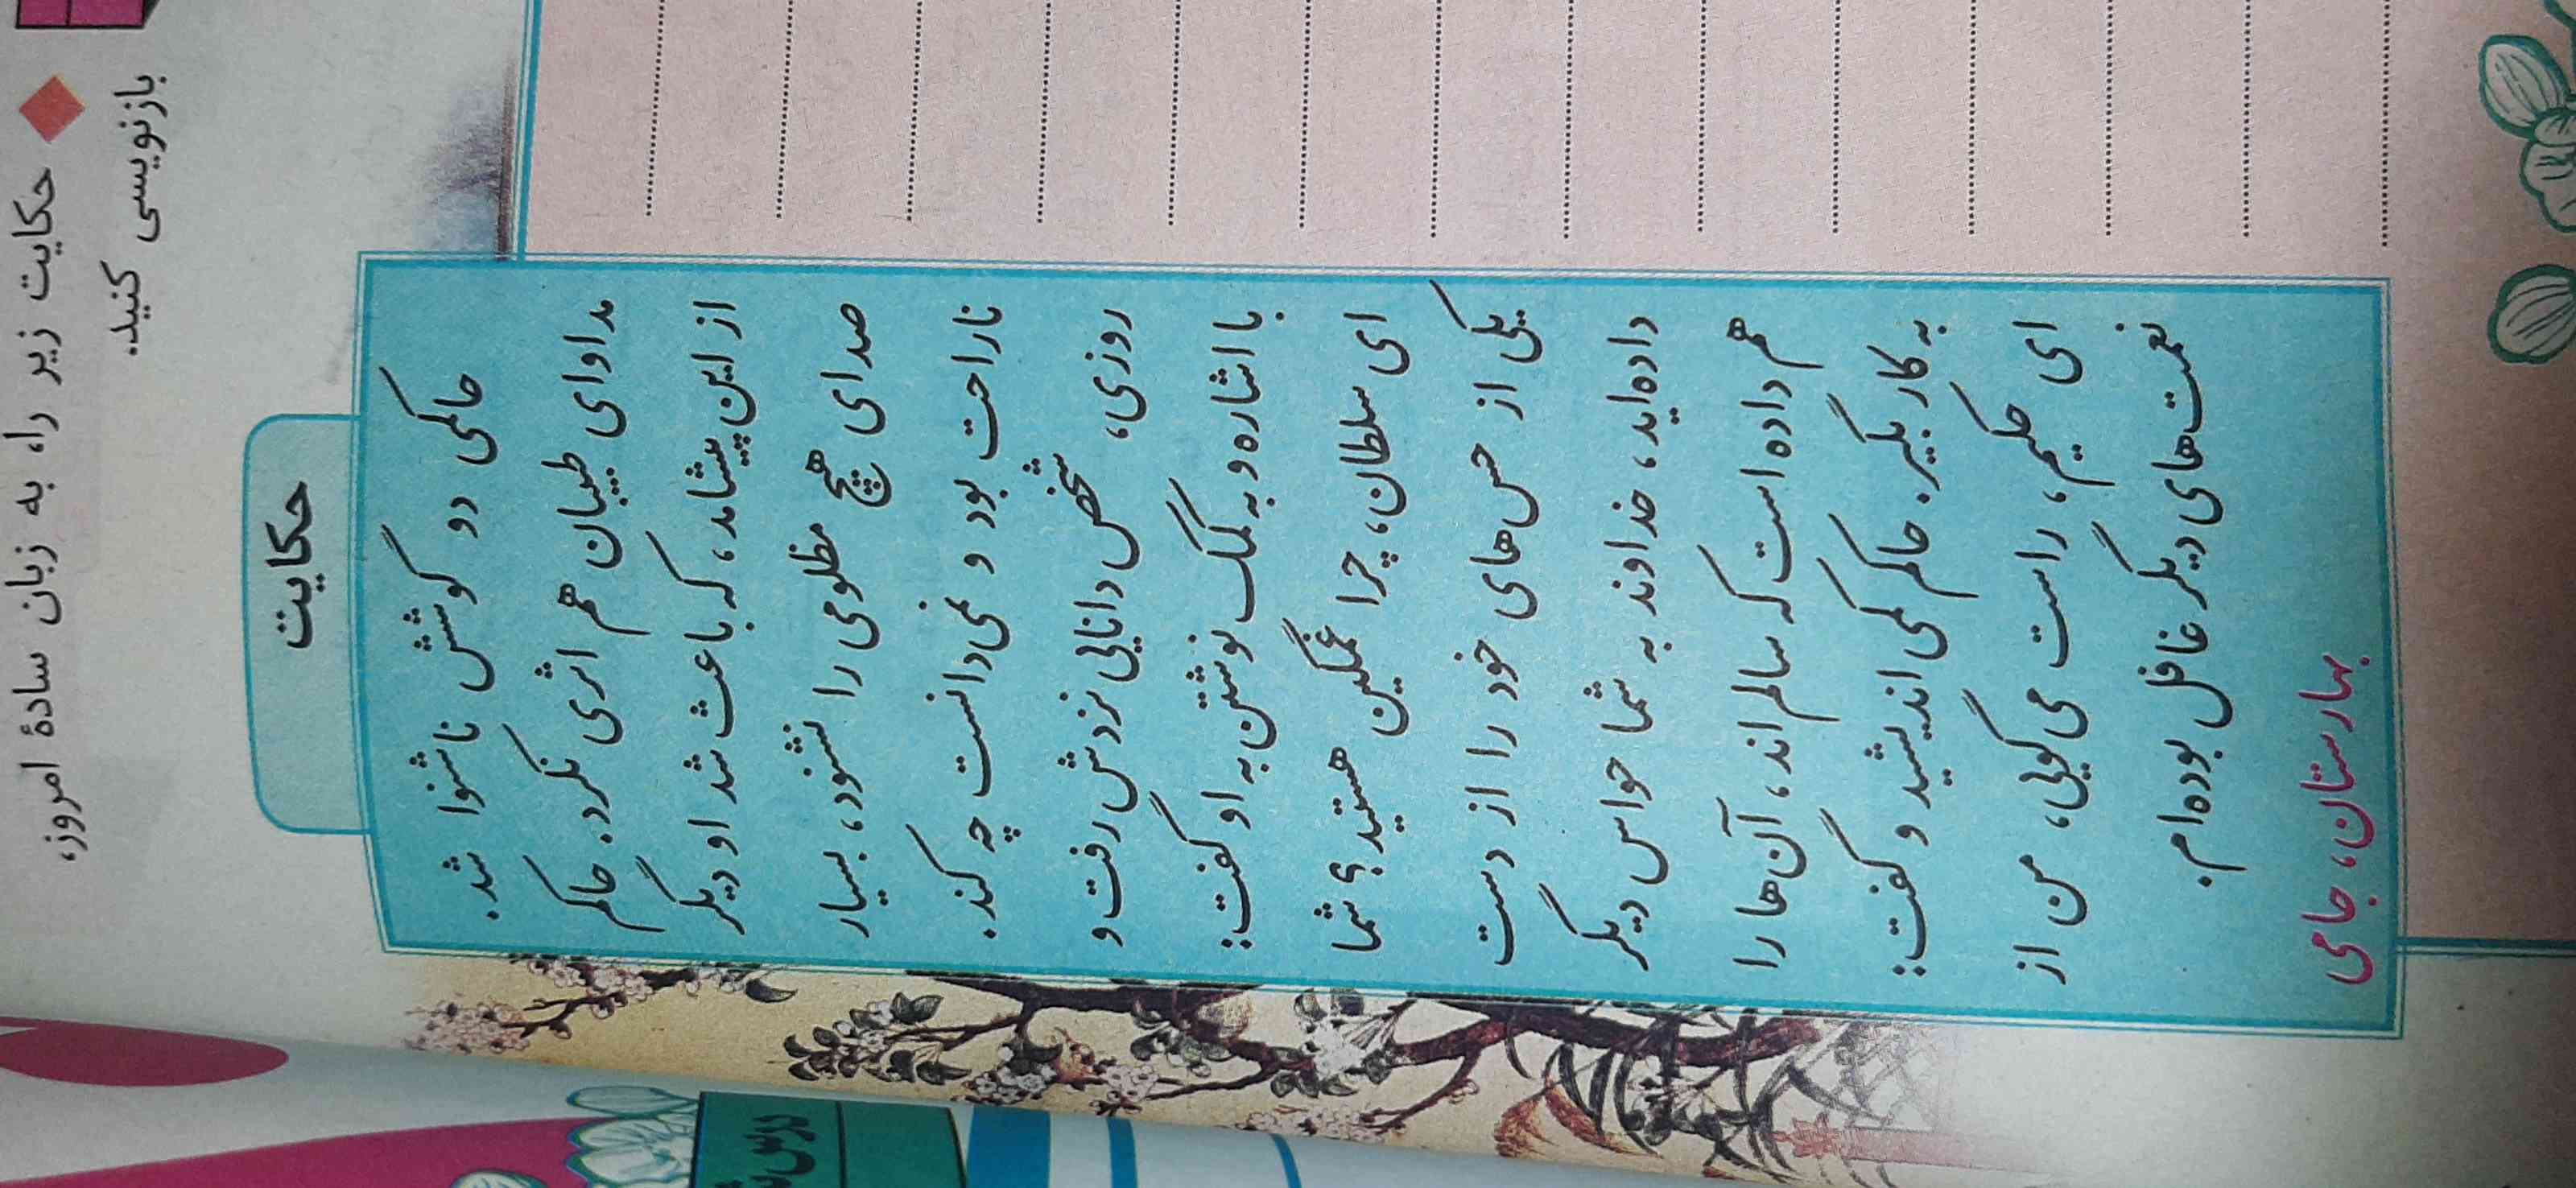 حکایت زیر را، به زبان سادهٔ امروز،
بازنویسی کنید.
حکایت
حاکمی دو گوشش ناشنوا شد.
مداوای طبیبان هم اثری نکرد. حاکم
از این پیشامد، که باعث شد او دیگر
صدای هیچ مظلومی را نشنود، بسیار
ناراحت بود و نمی‌دانست چه کند.
روزی، شخص دانایی نزدش رفت و
با اشاره و به کمک نوشتن به او گفت:
ای سلطان، چرا غمگین هستید؟ شما
یکی از حس‌های خود را از دست
داده‌اید، خداوند به شما حواس دیگر
هم داده است که سالم‌اند، آن‌ها را
به کار بگیر. حاکم کمی اندیشید و گفت:
ای حکیم، راست می‌گویی، من از
نعمت‌های دیگر غافل بوده‌ام.
بهارستان، جامی
درس